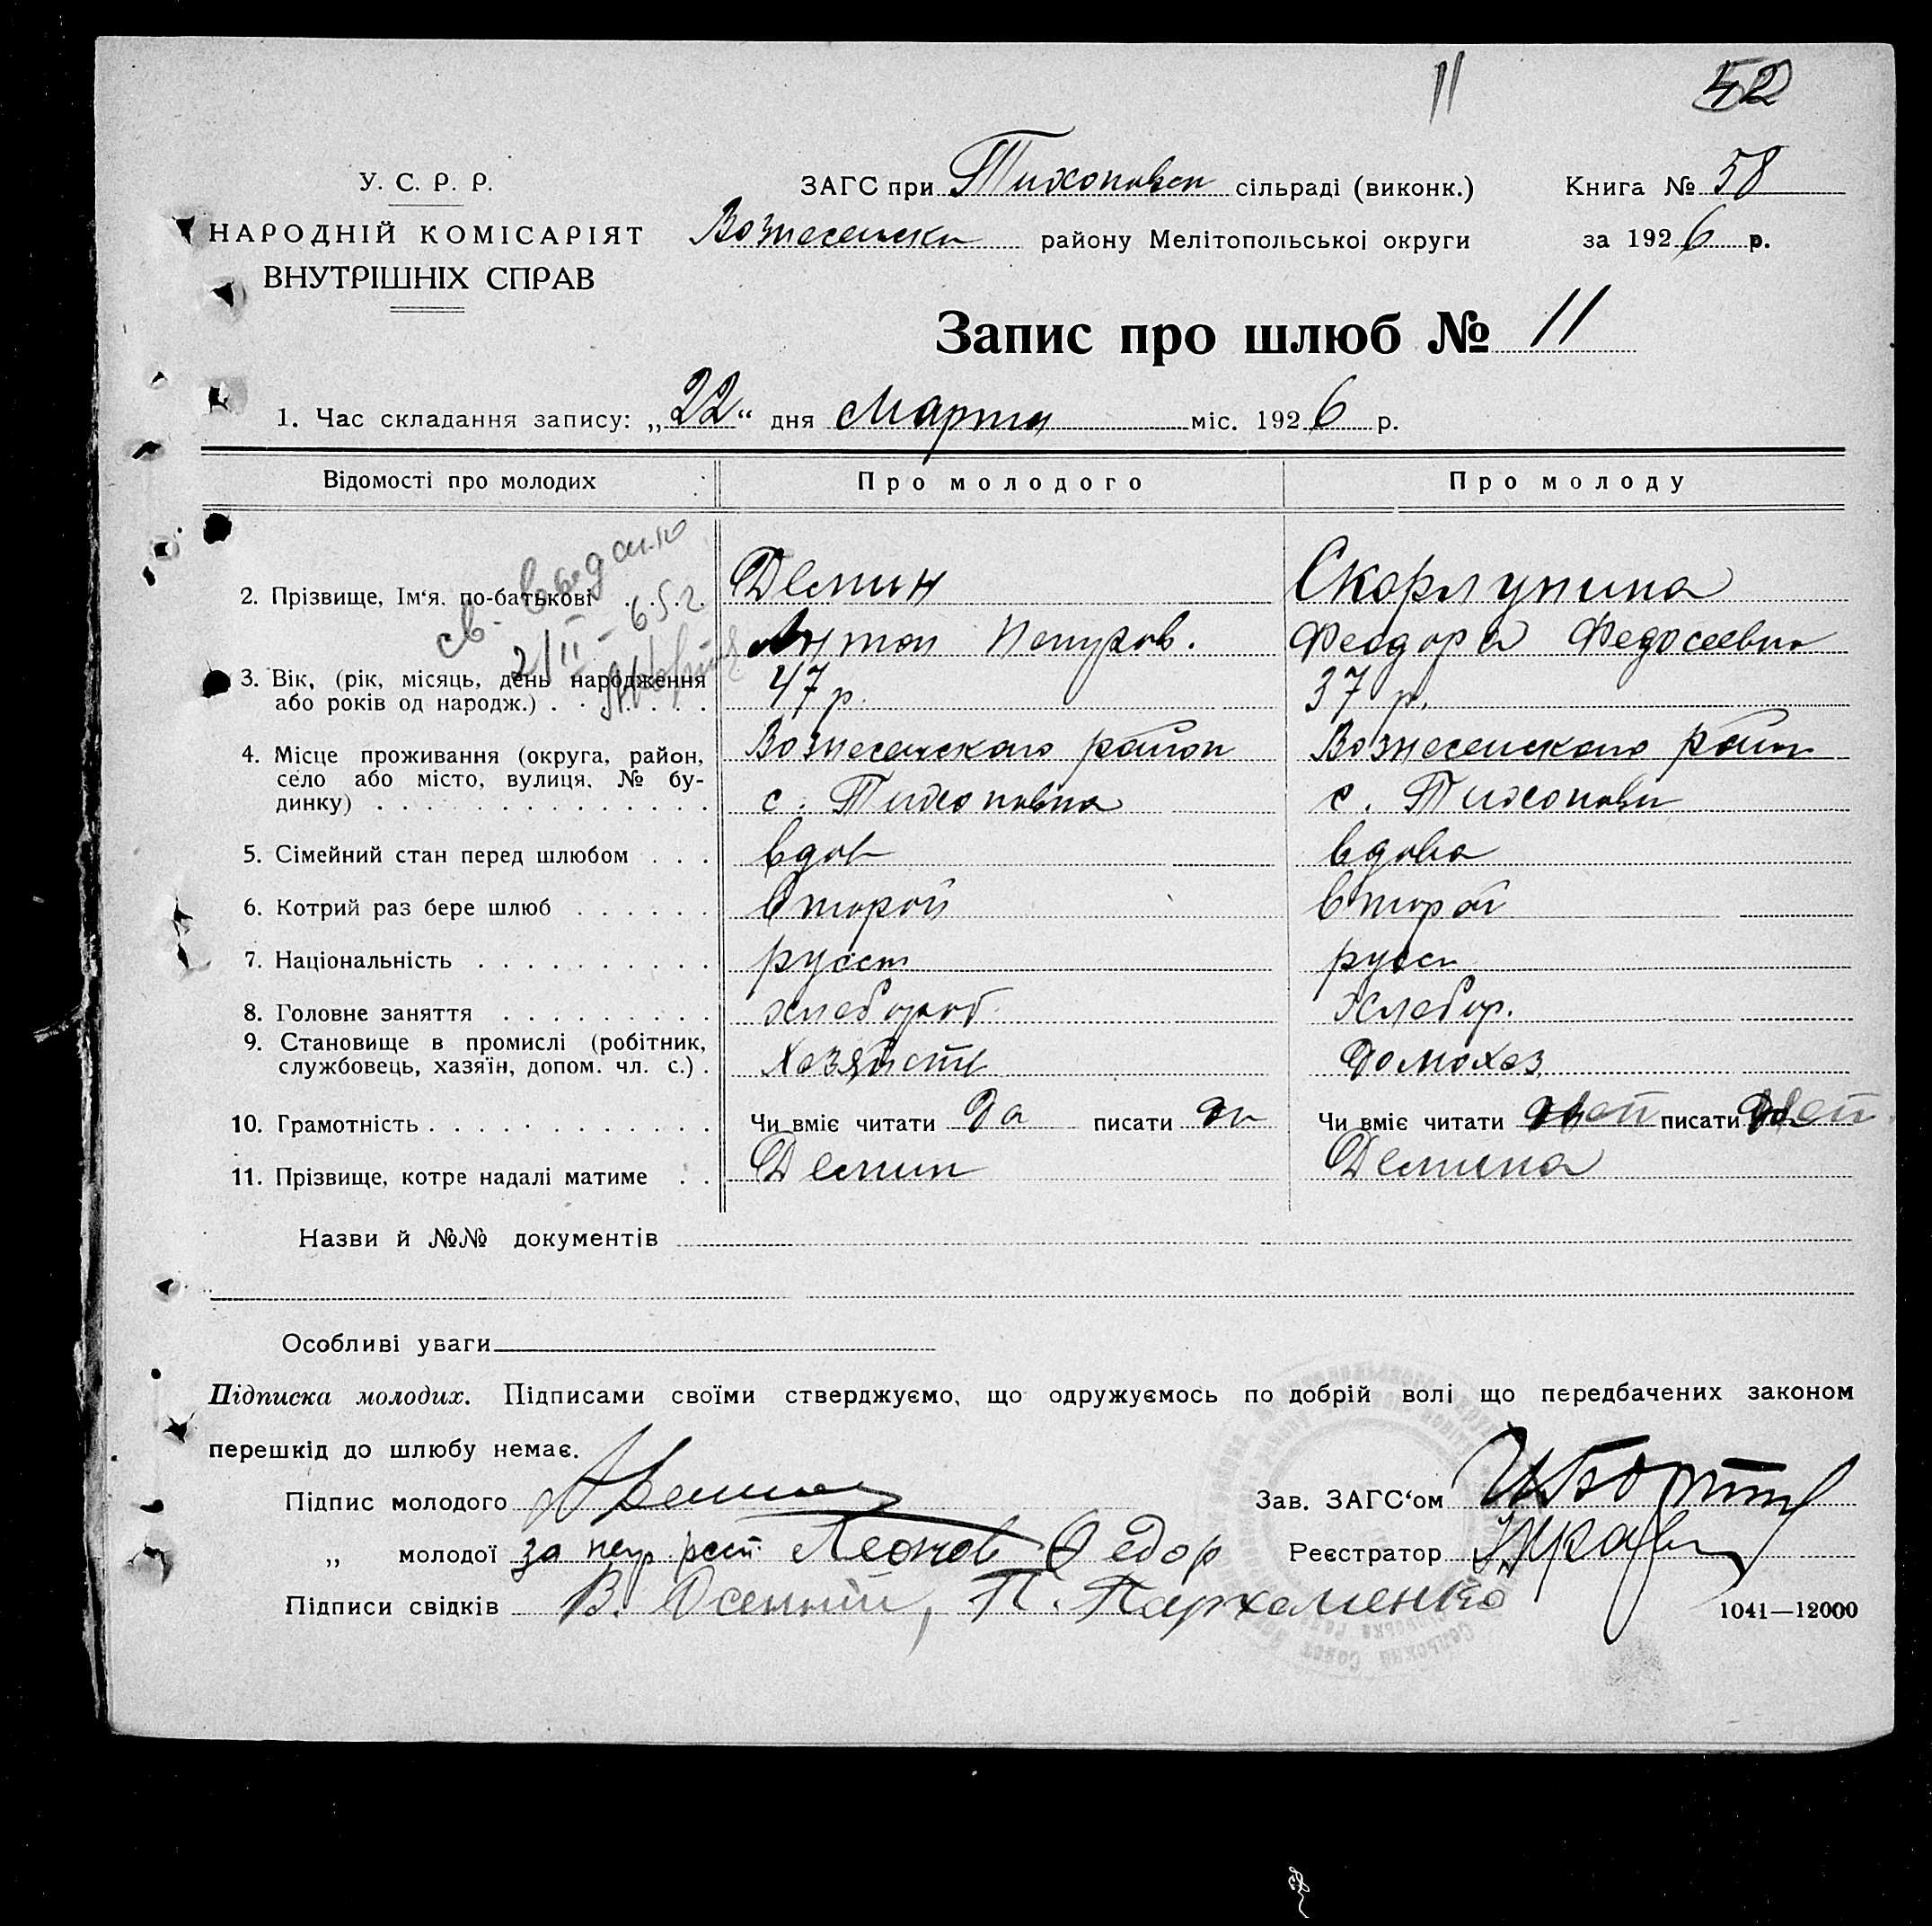 11
42
У. С. Р. Р.
НАРОДНІЙ КОМІСАРІЯТ
ВНУТРІШНІХ СПРАВ
ЗАГС при Тихоновск сільраді (виконк.)
Книга № 58
Вознесенски району Мелітопольської округи
за 1926 р.
Запис про шлюб № 11
1. Час складання запису: „22“ дня Марта міс. 1926 р.
Відомості про молодих
Про молодого
Про молоду
св. выдано
2/II - 65 г.
2. Прізвище, Ім‘я, по-батькові . . . .
Демин
Скорлупина
Антон
Феодора Федосеевна
3. Вік, (рік, місяць, день народження
або років од народж.) . . . . .
47 р.
37 р.
4. Місце проживання (округа, район,
село або місто, вулиця, № бу-
динку) . . . . . . . . . . . . . .
Вознесенского район
с. Тихоновка
Вознесенского район
с. Тихоновк
5. Сімейний стан перед шлюбом . . .
вдов
вдова
6. Котрий раз бере шлюб . . . . . .
второй
второй
7. Національність . . . . . . . . . .
русск
русск
8. Головне заняття . . . . . . . . .
хлебороб
Хлебор.
9. Становище в промислі (робітник,
службовець, хазяїн, допом. чл. с.) .
домохоз
10. Грамотність . . . . . . . . . . . .
Чи вміє читати да писати да
Чи вміє читати нет писати нет
11. Прізвище, котре надалі матиме . .
Демин
Демина
Назви й №№ документів
Особливі уваги
Підписка молодих. Підписами своїми стверджуємо, що одружуємось по добрій волі що передбачених законом
перешкід до шлюбу немає.
Підпис молодого АДемин
Зав. ЗАГС‘ом
„ молодої за негр. Леонов Федор
Реєстратор
Підписи свідків В. Осенний, П. Пархоменко
1041—12000